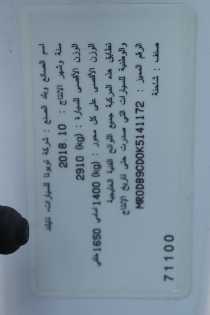 اسم الصانع وبلد الصنع : شركة تويوتا للسيارات، تايلاند
سنة وشهر الانتاج : 10 2018
الوزن الأقصى للسيارة : (kg) 2910
الوزن الأقصى على كل محور : (kg) 1400 أمامي 1650 خلفي
تطابق هذه المركبة جميع اللوائح الفنية الخليجية
والوطنية للسيارات التي صدرت حتى تاريخ الإنتاج
الرقم المميز : MR0DB9CD0K5141172
صنف : شاحنة
71100